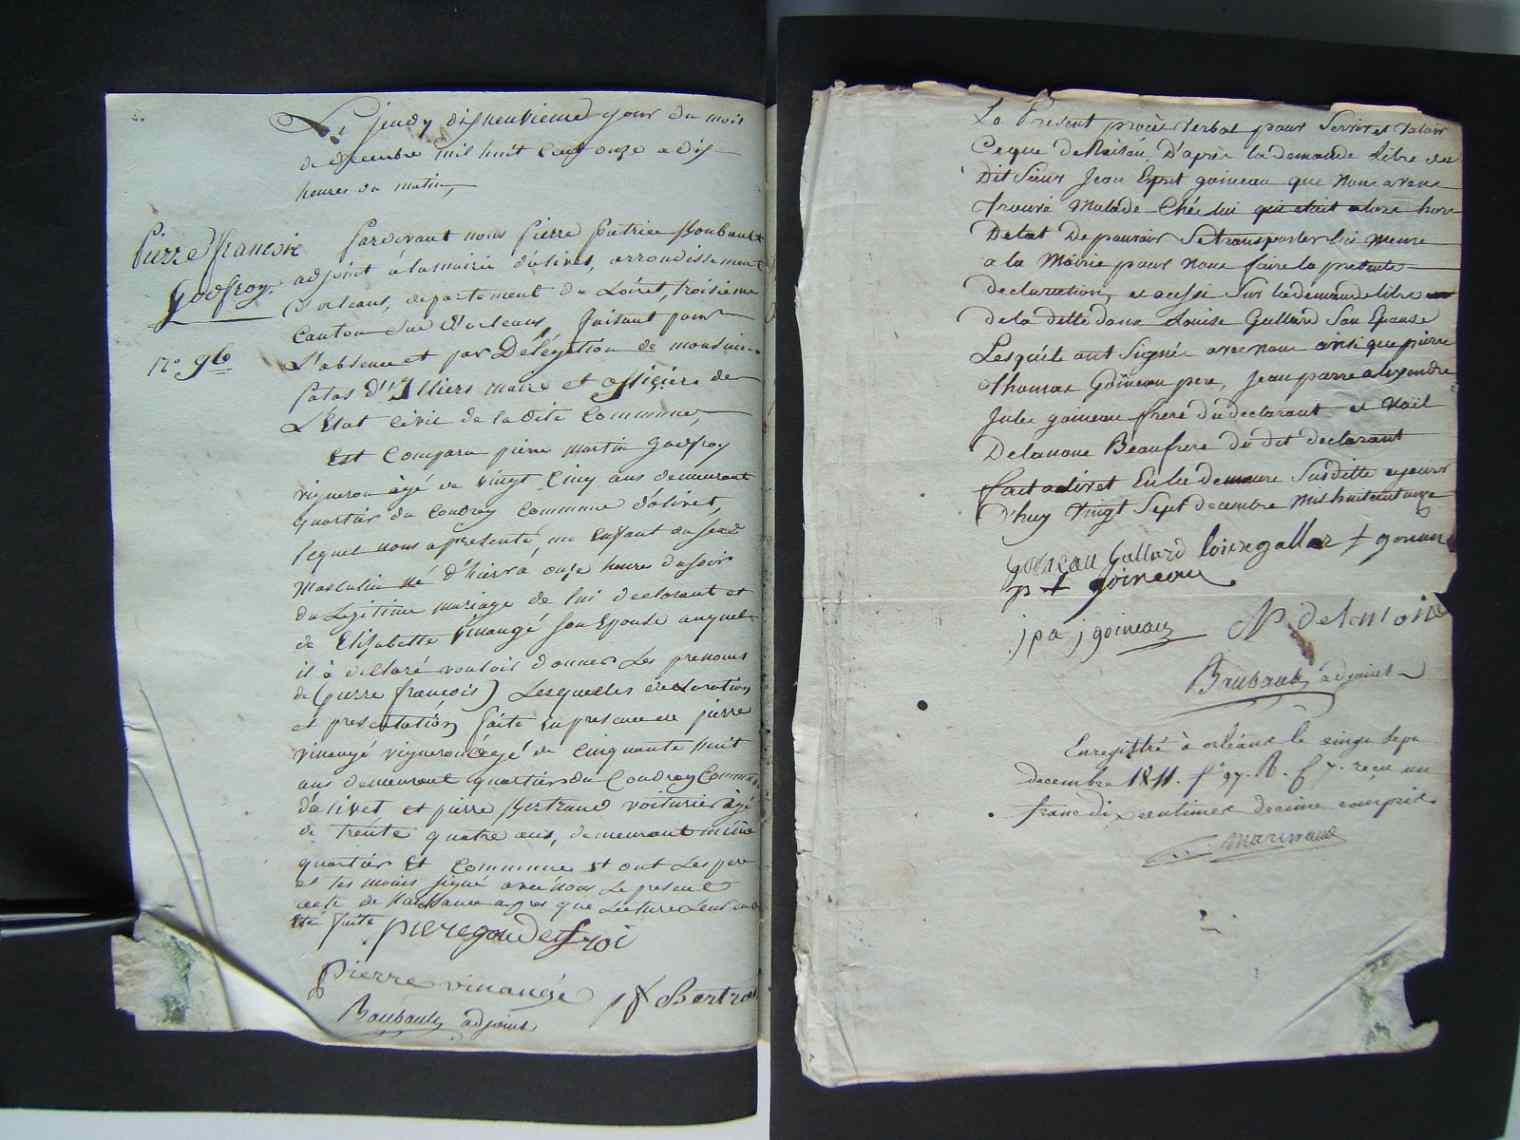 Le jeudy dixneuvieme jour du mois
de decembre mil huit cent onze a dix
heures du matin,
Pierre francois
Godfroy
n.º 96
Pardevant nous Pierre Patrice Boubault
adjoint à la mairie d'olivet, arrondissement
d'orleans, departement du Loiret, troisieme
Canton Sud d'orleans, faisant pour
L'absence et par Délégation de monsieur
Patas D'Illiers maire et officier de
L'Etat Civil de la dite Commune,
Est Comparu pierre martin godfroy
vigneron âgé de vingt Cinq ans demeurant
quartier du Coudray Commune d'olivet,
lequel nous a présenté, un Enfant du sexe
masculin né d'hier a onze heure du soir
du Légitime mariage de lui declarant et
de Elisabette vinangé son Epouse auquel
il à déclaré vouloir donner Les prenoms
de (pierre françois) Lesquelles déclaration
et presentation faite en presence de pierre
vinangé vigneron âgé de Cinquante huit
ans demeurant quartier du Coudray Commune
d'olivet et pierre Bertrand voiturier âgé
de trente quatre ans, demeurant même
quartier Et Commune et ont Les pere
et temoins signé avec nous Le present
acte de naissance apres que Lecture Leur en a
été faite
pieregaudefroi
Pierre vinangé
Bertran
Boubault adjoint
Le Present procès verbal pour Servir et valoir
Ceque de Raison. D'après la demande libre du
Dit Sieur Jean Esprit goineau que nous avons
trouvé malade Chéz lui qui etait alors hors
Detat De pouvoir Setransporter lui meme
a la Mairie pour nous faire la présente
declaration, et aussi Sur la demande libre
de la ditte dame Louise Gallard Son Epouse
Lesquels ont Signés avec nous ainsi que pierre
thomas Goineau pere, Jean pierre alexandre
Jules goineau frere du declarant et Noël
Delanoue Beaufrere du dit declarant
fait a olivet En la demeure Susditte cejourd
d'huy vingt Sept decembre mil huit cent onze
goineau Gallard
goineau
p t goineau
j p a j goineau
Boubault adjoint
Enregistré à orléans le vingt Sept
decembre 1811. f° 97. R. C 7. reçu un
franc dix centimes decime compris.